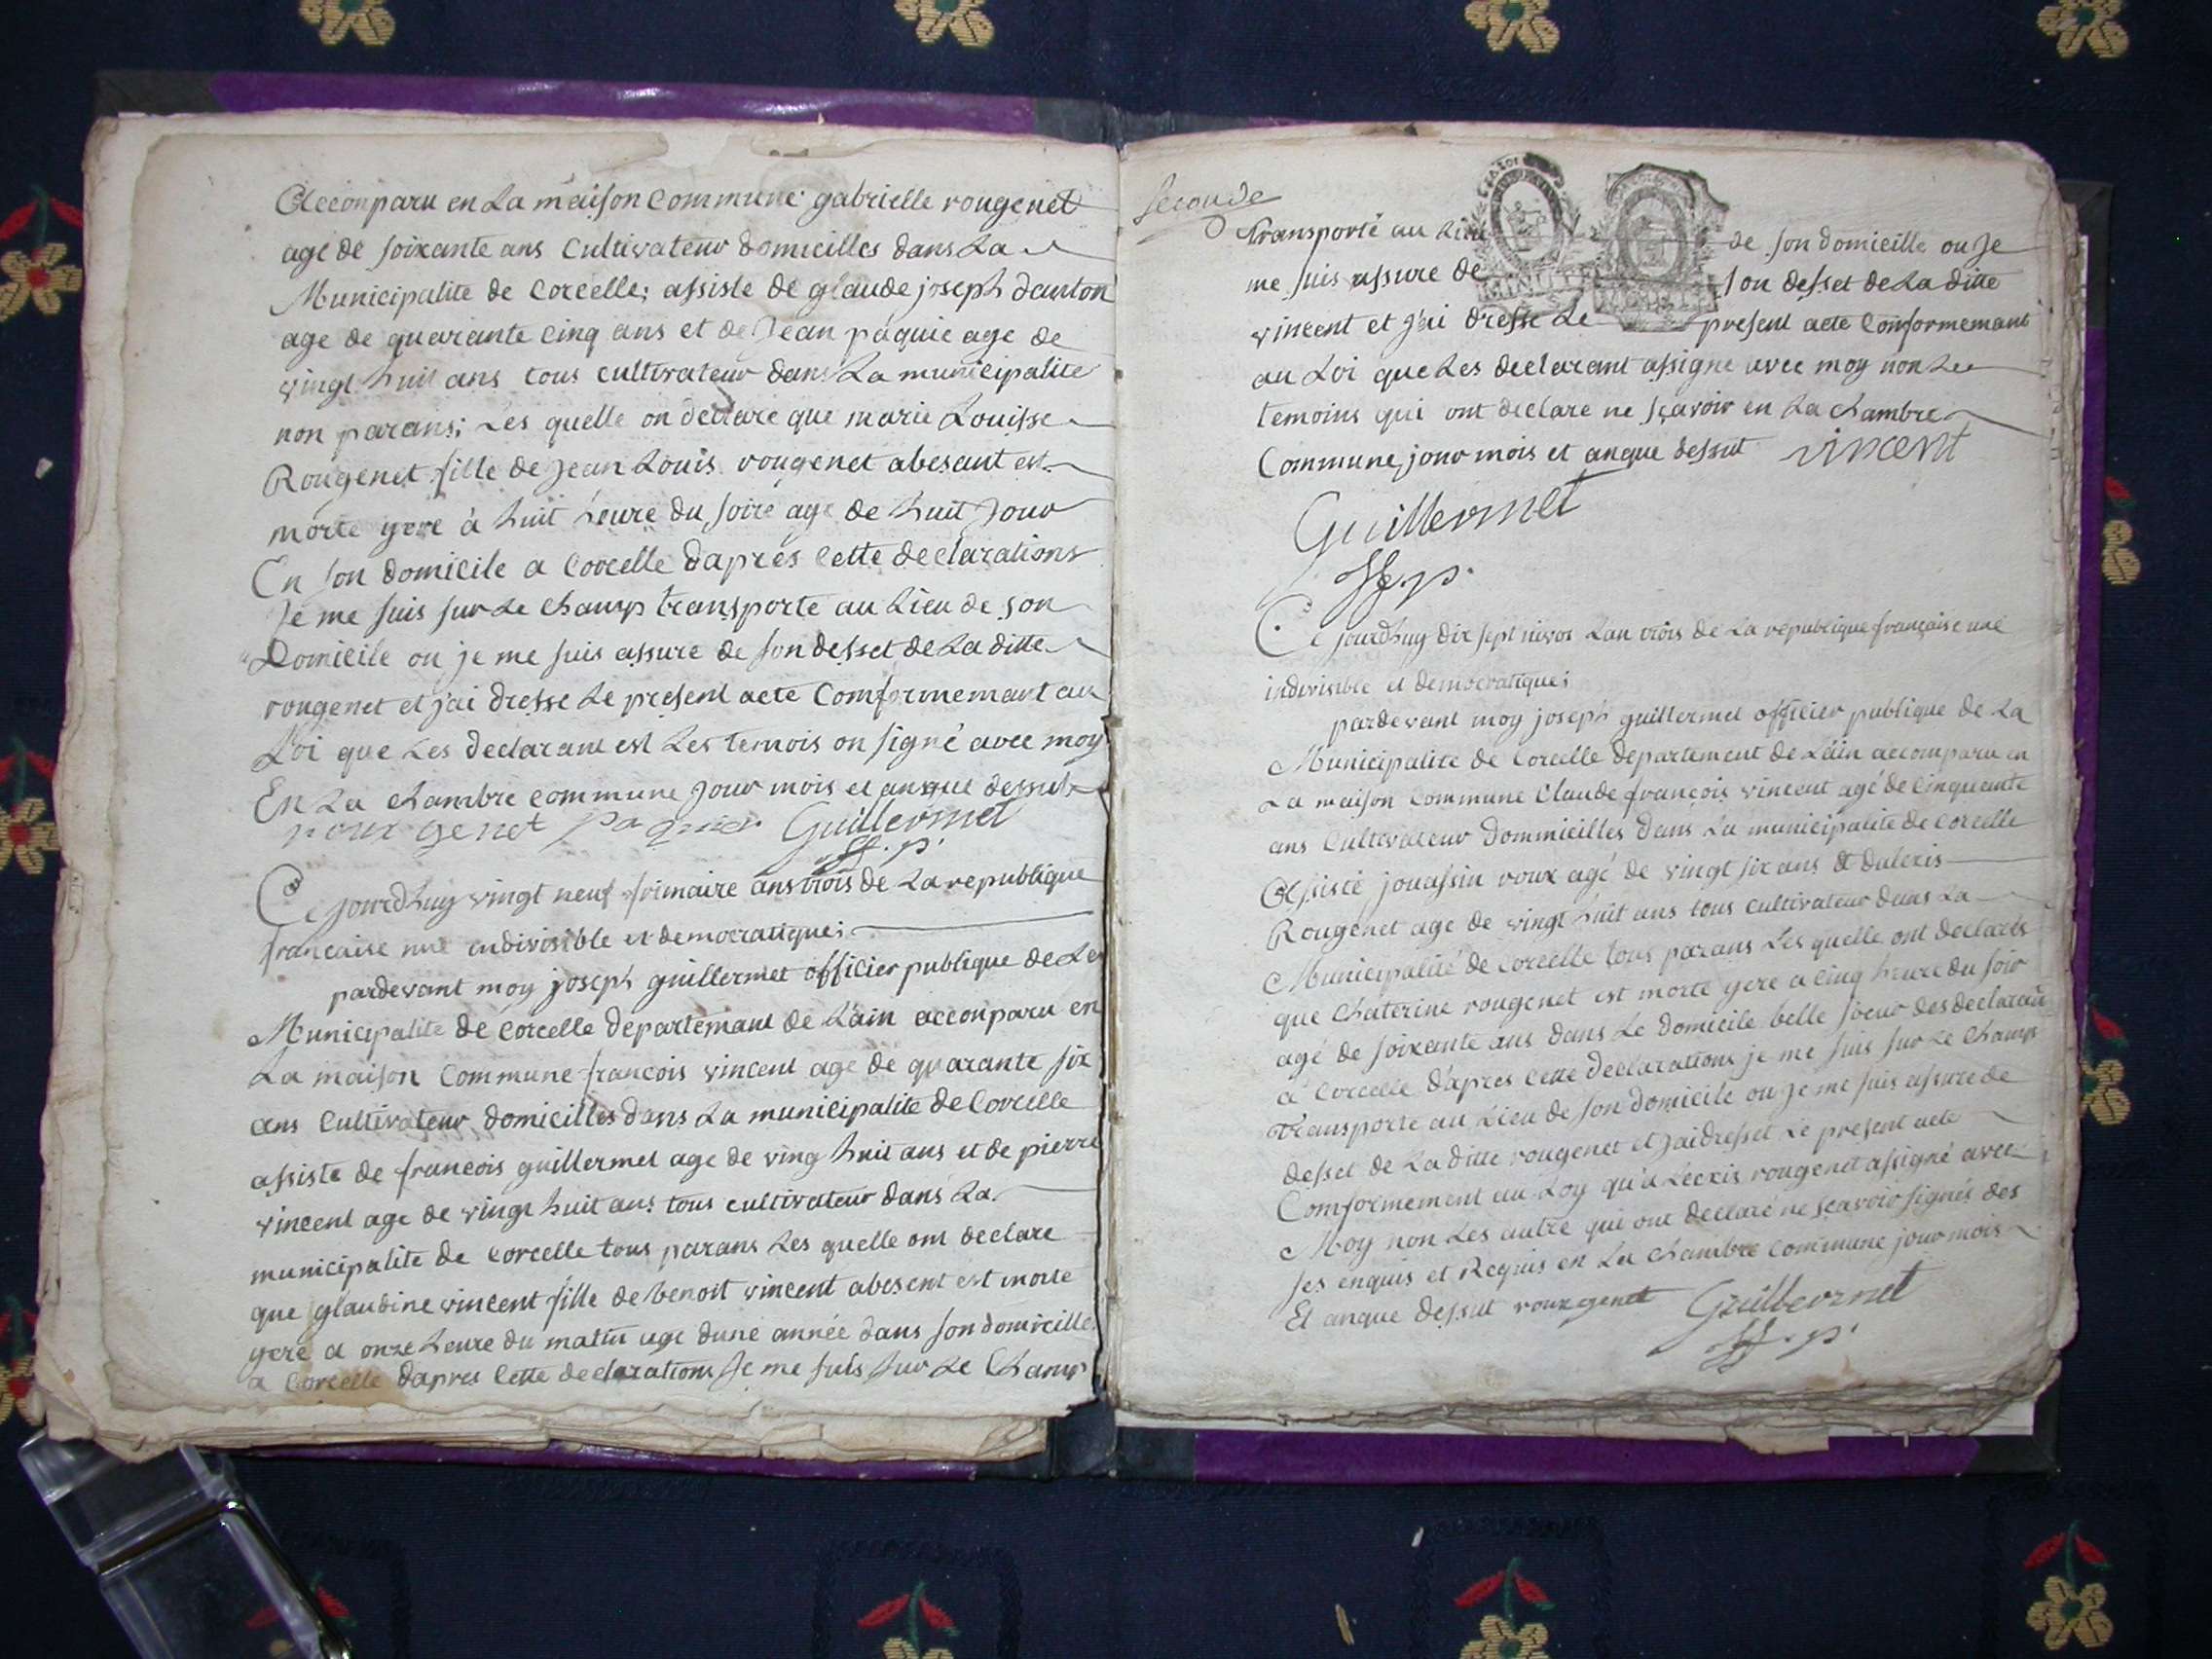 Acconparu en La maison Commune gabrielle rougenet
age de soixante ans Cultivateur domicilles dans La
Municipalite de Corcelle; assiste de glaude joseph danton
age de quarante Cinq ans et de Jean paquie age de
vingt huit ans tous cultivateur dans La municipalite
non parans; Les quelle on declare que marie Louisse
Rougenet fille de Jean Louis rougenet abesant est
morte yere à huit heure du soire age de huit Jour
En son domicile a Corcelle daprés Cette declarations
Je me suis sur Le champ transporte au Lieu de son
Domicile ou je me suis assure de son desset de La ditte
rougenet et j'ai dresse Le present acte Comformemant au
Loi que Les declarant est Les temois on signé avec moy
En La chambre commune Jour mois et anque dessut
rourgenet paquier Guillermet
Ce jourdhuy vingt neuf frimaire ans trois de La republique
francaise une indivisible et democratique;
pardevant moy joseph guillermet officier publique de La
Municipalite de Corcelle departemant de L'ain acconparu en
La maison Commune francois vincent age de quarante six
ans Cultivateur domicilles dans La municipalite de Corcelle
assiste de francois guillermet age de ving huit ans et de pierre
vincent age de vingt huit ans tous cultivateur dans La
municipalite de Corcelle tous parans Les quelle ont declare
que glaudine vincent fille de benoit vincent abesent est morte
yere a onze heure du matin age dune année dans son domicille
a Corcelle dapres Cette declarations Je me suis sur Le Champ
seconde
Transporté au Lieu de son domicille ou Je
me suis assure de son desset de La ditte
vincent et j'ai dresse Le present acte Conformemant
au Loi que Les declarant assigne avec moy non Les
temoins qui ont declare ne sçavoir en La chambre
Commune, jour mois et anque dessut vincent
Guillermet
Ce jourdhuy dix sept nivos Lan trois de La republique française une
indivisible et democratique;
pardevant moy joseph guillermet officier publique de La
Municipalite de Corcelle departement de L'ain acconparu en
La maison Commune Claude françois vincent agé de Cinquante
ans Cultivateur Dommicilles dans La municipalite de Corcelle
Assisté jouassin roux agé de vingt six ans & dalexis
Rougenet age de vingt huit ans tous Cultivateur dans La
Municipalité de Corcelle tous parans Les quelle ont declarés
que Chaterine rougenet est morte yere a cinq heure du soir
agé de soixante ans dans Le domicile belle soeur des declarans
à Corcelle d'apres Cette declarations je me suis sur Le Champ
Transporte au Lieu de son domicile ou Je me suis assure de
desset de La ditte rougenet et J'ai dresset Le present acte
Comformement au Loy qu'aLecxis rougenet assigné avec
Moy non Les autre qui ont declaré ne sçavoir signés des
ses enquis et Requis en La chambre commune jour mois
Et anque dessut rourgenet Guillermet